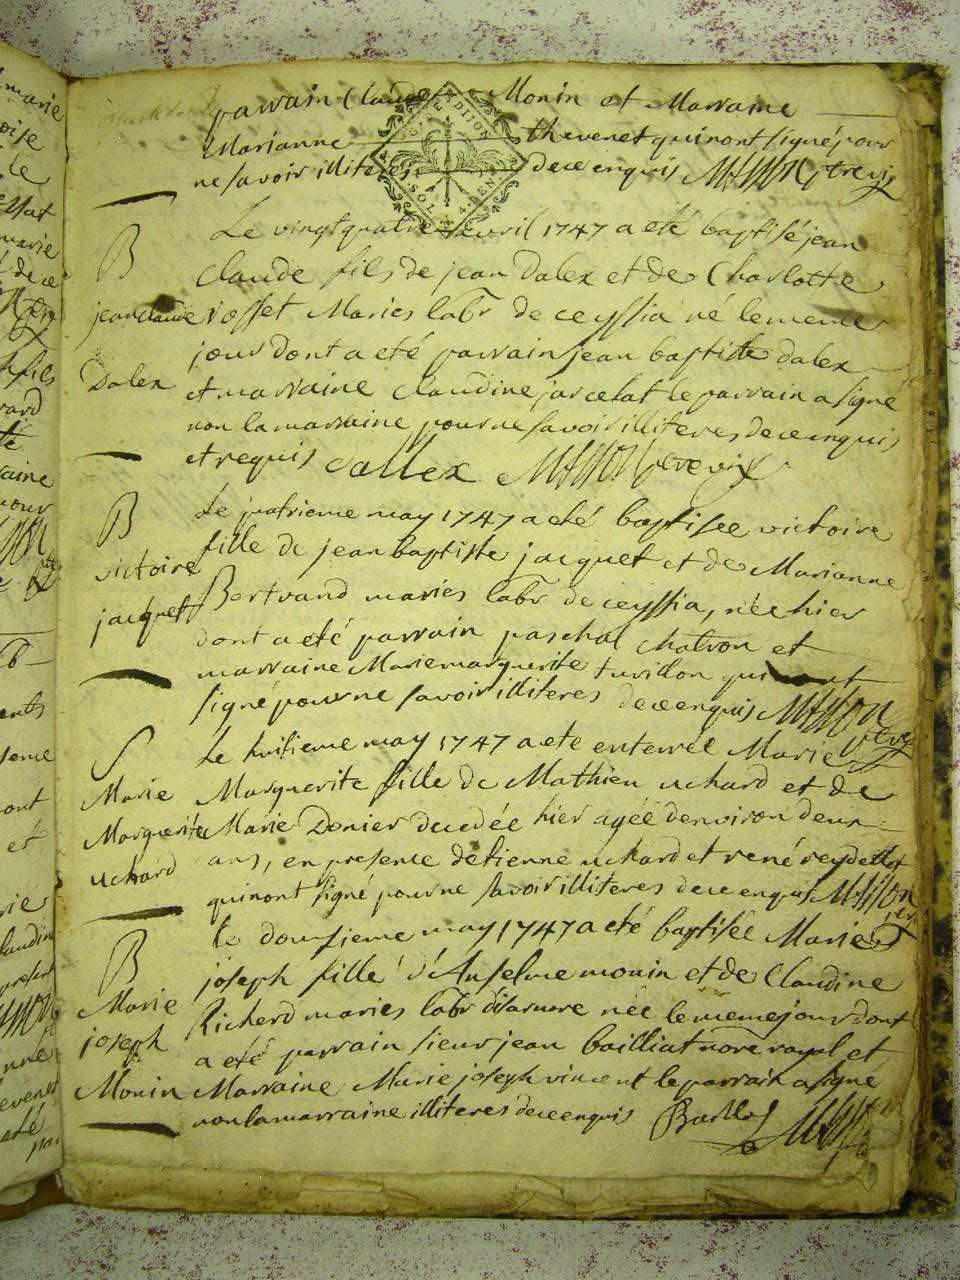 parrain Claude Monin et Marraine
Marianne thevenet qui nont signé pour
G. DIJON
SOL. 4. DEN
ne savoir illiteres de ce enquis
Le vingt quatre avril 1747 a eté baptisé jean
B
Claude fils de jean Dalex et de Charlotte
jean claude
rosset Maries labr de ceyssia né le meme
jour dont a eté parrain jean baptiste dalex
Dalex
et marraine Claudine jarcelat le parrain a signé
non la marraine pour ne savoir illiteres de ce enquis
et requis Dallex
B
Le quatrieme may 1747 a eté baptisée victoire
fille de jean baptiste jacquet et de Marianne
victoire
Bertrand mariés labr de ceyssia, née hier
jacquet
dont a eté parrain paschal chatron et
marraine Marie marguerite turillon qui nont
signé pour ne savoir illiteres de ce enquis
S
Le huitieme may 1747 a eté enterrée Marie
Marie
Marguerite fille de Mathieu uchard et de
Marguerite
Marie Donier decedée hier agée denviron deux
uchard
ans, en presence detienne uchard et rené reydellet
qui nont signé pour ne savoir illiteres de ce enquis
le dousieme may 1747 a eté baptisée Marie
B
joseph fille d'Anselme monin et de Claudine
Marie
Richerd maries labr née le meme jour dont
joseph
a eté parrain sieur jean bailliat nore royal et
Monin
Marraine Marie joseph vincent le parrain a signé
non la marraine illiteres de ce enquis